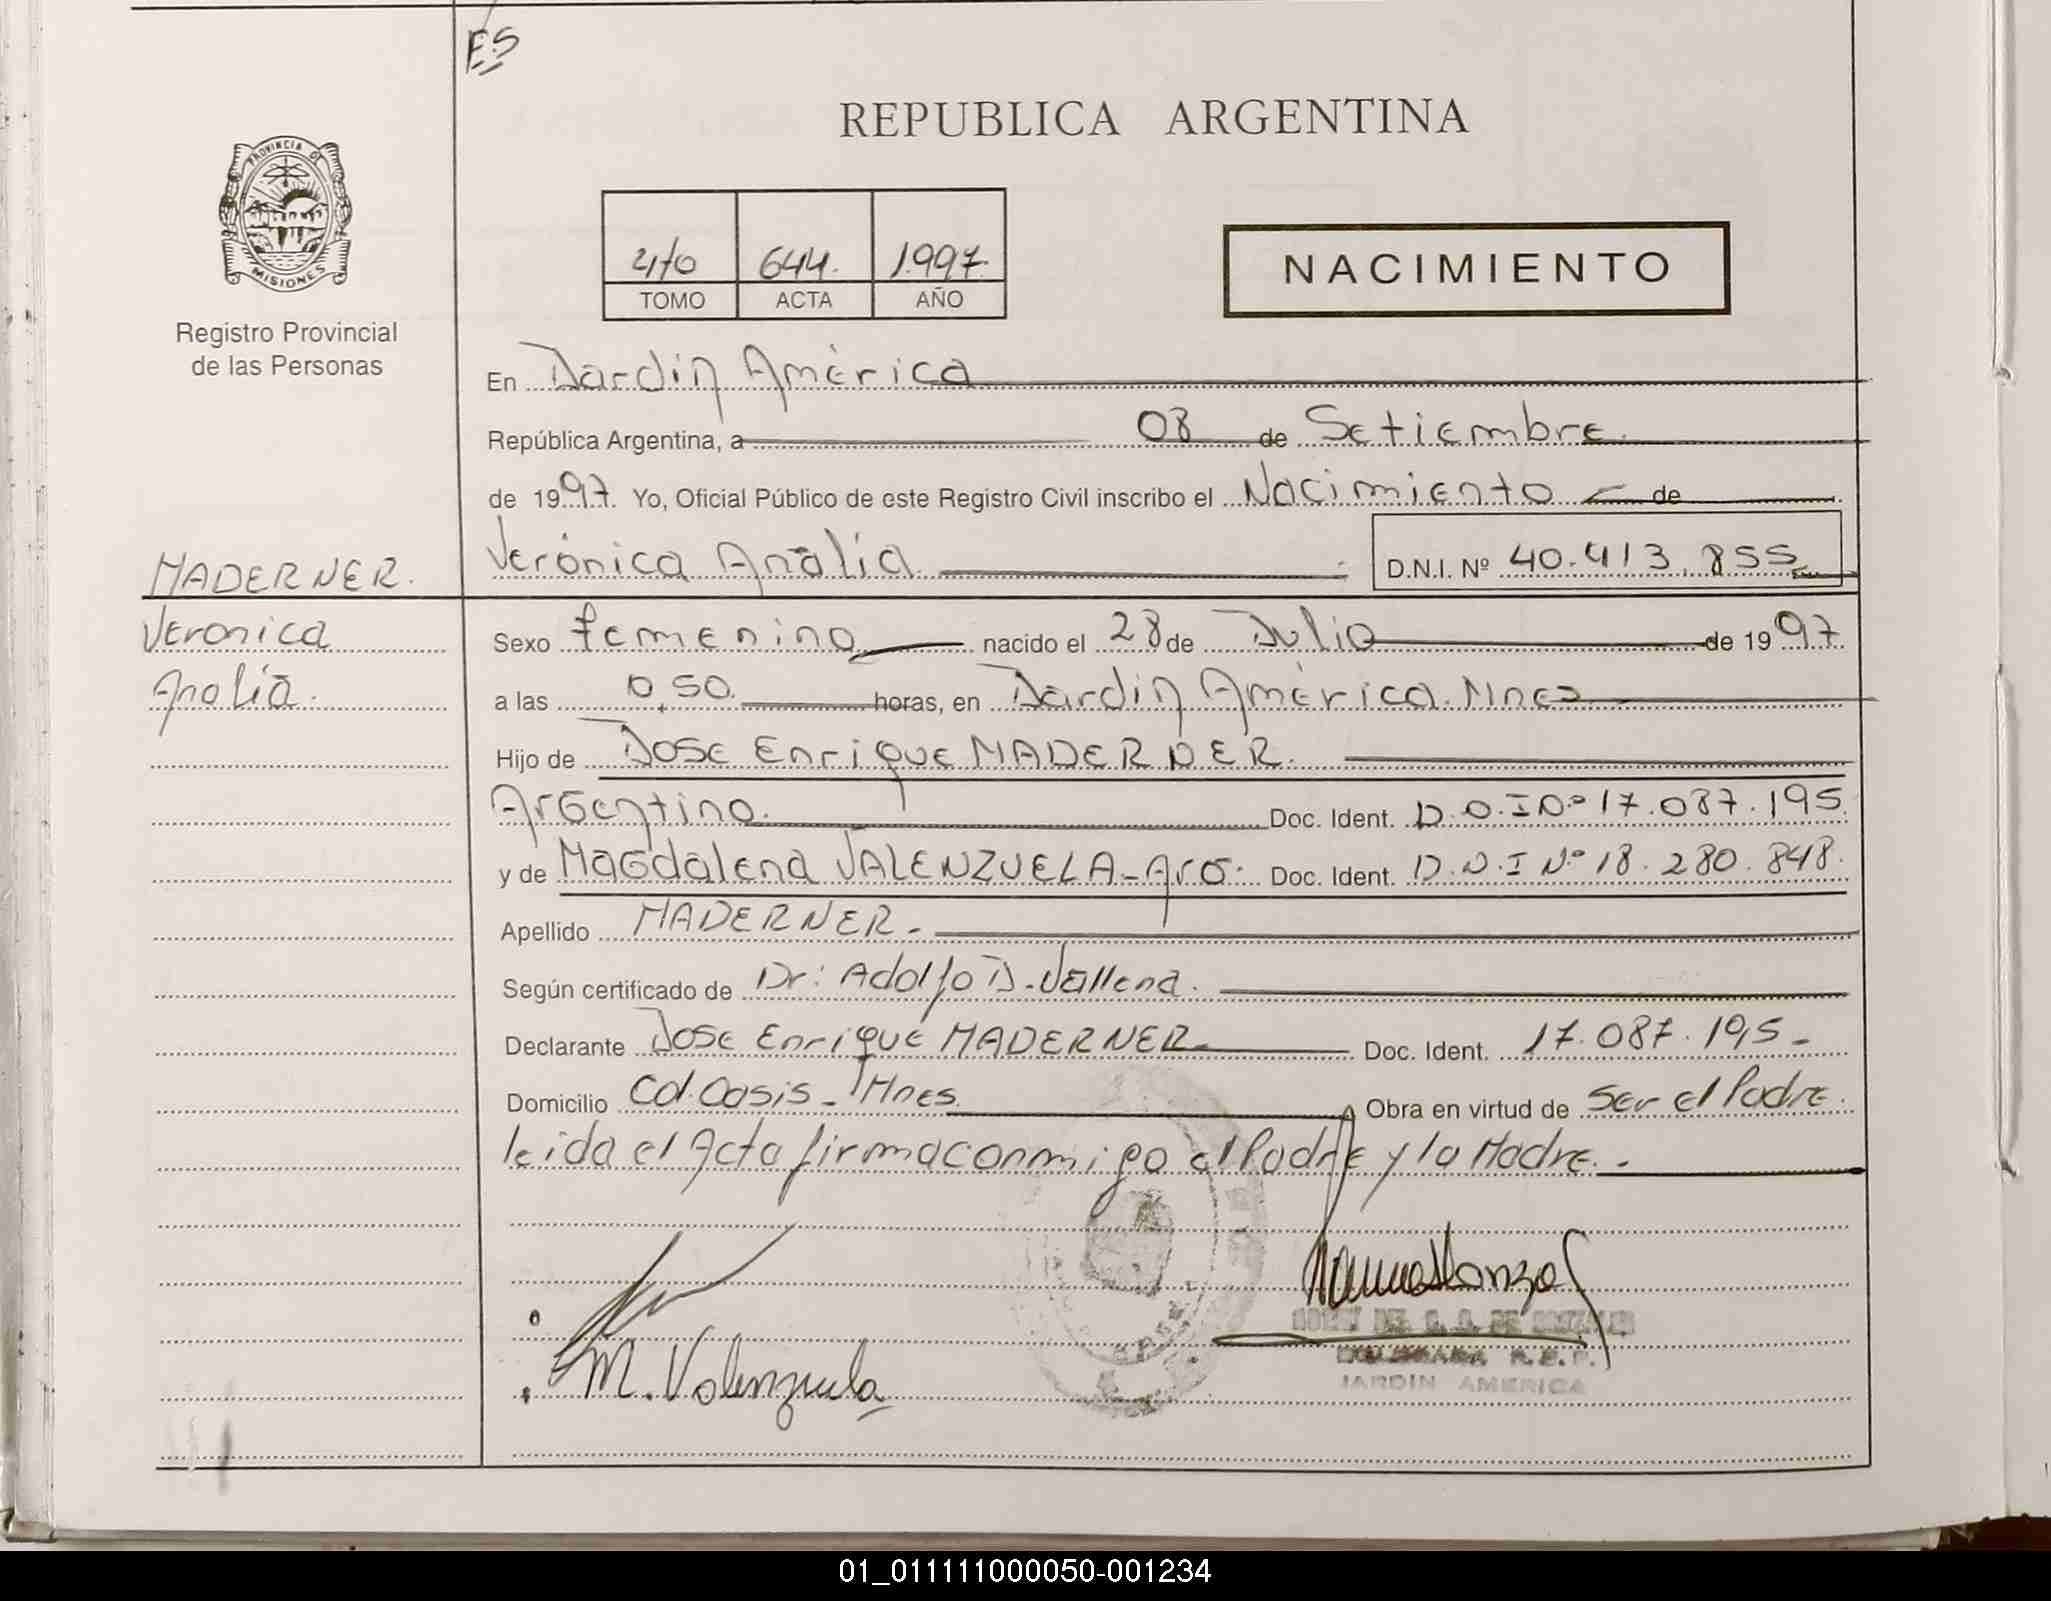 ES
REPUBLICA ARGENTINA
PROVINCIA DE
MISIONES
Registro Provincial
de las Personas
4to 644. 1997.
TOMO ACTA AÑO
NACIMIENTO
En Jardin América
República Argentina, a 08 de Setiembre.
de 1997. Yo, Oficial Público de este Registro Civil inscribo el Nacimiento de
Verónica Analía. D.N.I. Nº 40.413.855
MADERNER.
Veronica
Analía.
Sexo femenino nacido el 28 de Julio de 1997.
a las 0,50. horas, en Jardin América. Mnes
Hijo de Jose Enrique MADERNER.
Argentino. Doc. Ident. D.N.I Nº 17.087.195.
y de Magdalena VALENZUELA - Arg. Doc. Ident. D.N.I Nº 18.280.848.
Apellido MADERNER.-
Según certificado de Dr: Adolfo D. Vallena.
Declarante Jose Enrique MADERNER.- Doc. Ident. 17.087.195.-
Domicilio Col. Oasis - Mnes. Obra en virtud de ser el Padre.
leida el Acta firma conmigo el Padre y la Madre.-
M. Valenzuela
R.S.P.
JARDIN AMERICA
01_011111000050-001234